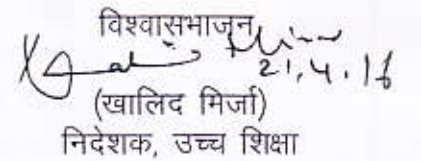 विश्वासभाजन
21.4.16
(खालिद मिर्जा)
निदेशक, उच्च शिक्षा